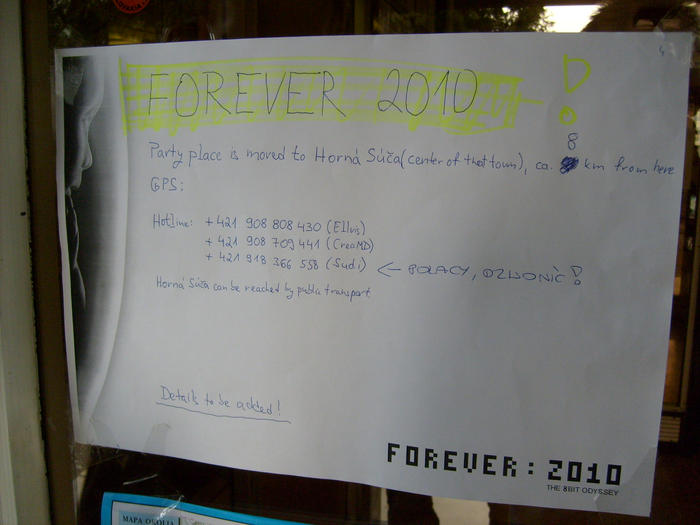 FOREVER 2010
Party place is moved to Horná Súča (center of that town), ca. 8 km from here
GPS:
Hotline: +421 908 808 430 (Ellvis)
+421 908 709 441 (CreaMD)
+421 918 366 558 (Sudi) ← POLACY, DZWONIĆ!
Horná Súča can be reached by public transport
Details to be added!
FOREVER: 2010
THE 8BIT ODYSSEY
MAPA OKOLIA